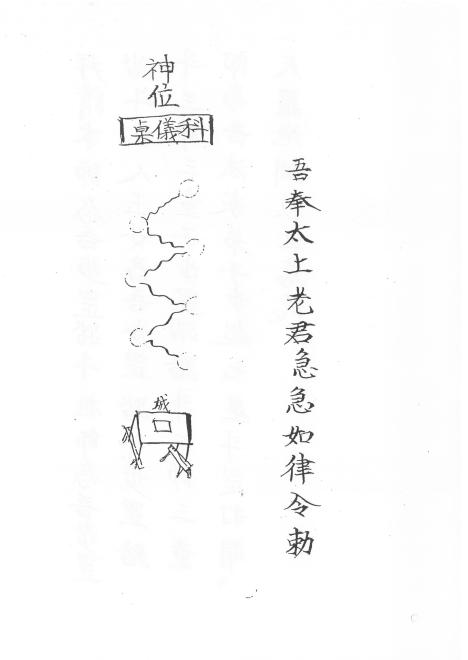 吾奉太上老君急急如律令勅
神位
科儀桌
城